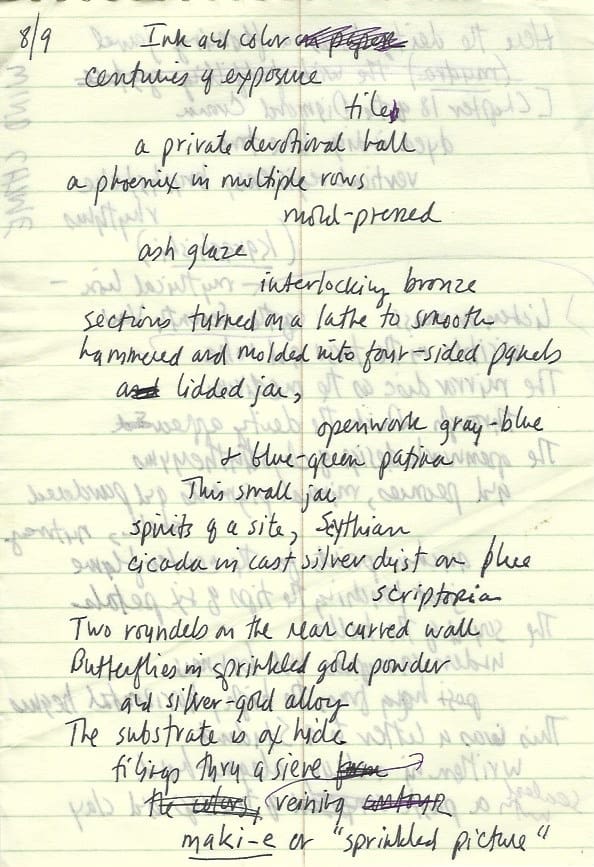 8/9
Ink and color on paper
centuries of exposure
tile
a private devotional hall
a phoenix in multiple rows
mold-pressed
ash glaze
interlocking bronze
sections turned on a lathe to smooth
hammered and molded into four-sided panels
and lidded jar,
openwork gray-blue
& blue-green patina
This small jar
spirits of a site, Scythian
cicada in cast silver dust on blue
scriptoria
Two roundels on the rear curved wall
Butterflies in sprinkled gold powder
and silver-gold alloy
The substrate is ox hide
filings thru a sieve form
the colors, veining contour
maki-e or "sprinkled picture"
WIND CHIME